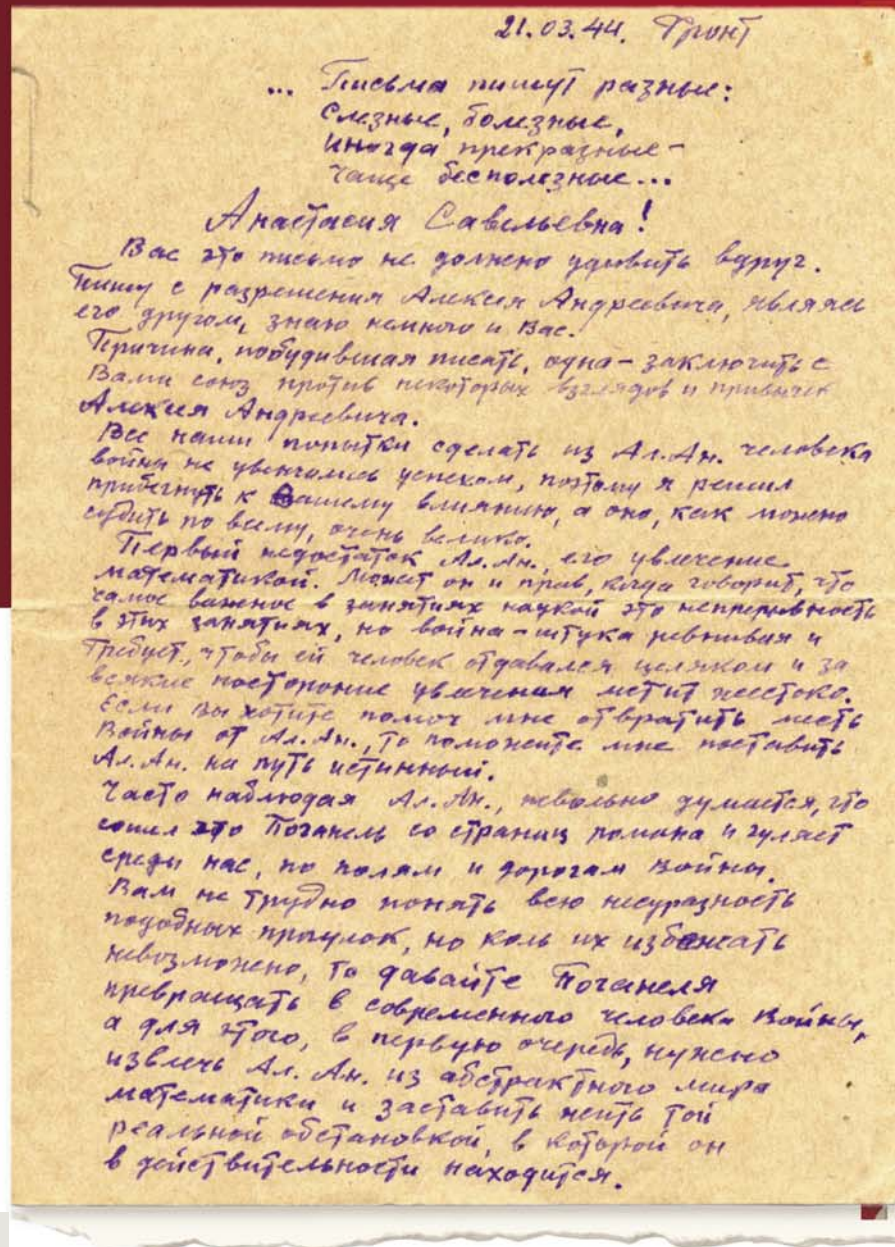 21.03.44. Фронт
... Письма пишут разные:
Слезные, болезные,
иногда прекразные –
чаще бесполезные...
Анастасия Савельевна!
Вас это письмо не должно удивить вдруг.
Пишу с разрешения Алексея Андреевича, являясь
его другом, знаю немного и Вас.
Причина, побудившая писать, одна – заключить с
Вами союз против некоторых взглядов и привычек
Алексея Андреевича.
Все наши попытки сделать из Ал.Ан. человека
войны не увенчались успехом, поэтому я решил
прибегнуть к Вашему влиянию, а оно, как можно
судить по всему, очень велико.
Первый недостаток Ал.Ан., его увлечение
математикой. Может он и прав, когда говорит, что
самое важное в занятиях наукой это непрерывность
в этих занятиях, но война – штука ревнивая и
требует, чтобы ей человек отдавался целяком и за
всякие посторонние увлечения мстит жестоко.
Если вы хотите помоч мне отвратить месть
Войны от Ал.Ан., то поможите мне поставить
Ал.Ан. на путь истинный.
Часто наблюдая Ал.Ан., невольно думается, что
сошел это Поганель со страниц романа и гуляет
среди нас, по полям и дорогам войны.
Вам не трудно понять всю несуразность
подобных прогулок, но коль их избежать
невозможно, то давайте Поганеля
превращать в современного человека войны,
а для этого, в первую очередь, нужно
извлечь Ал.Ан. из абстрактного мира
математики и заставить жить той
реальной обстановкой, в которой он
в действительности находится.